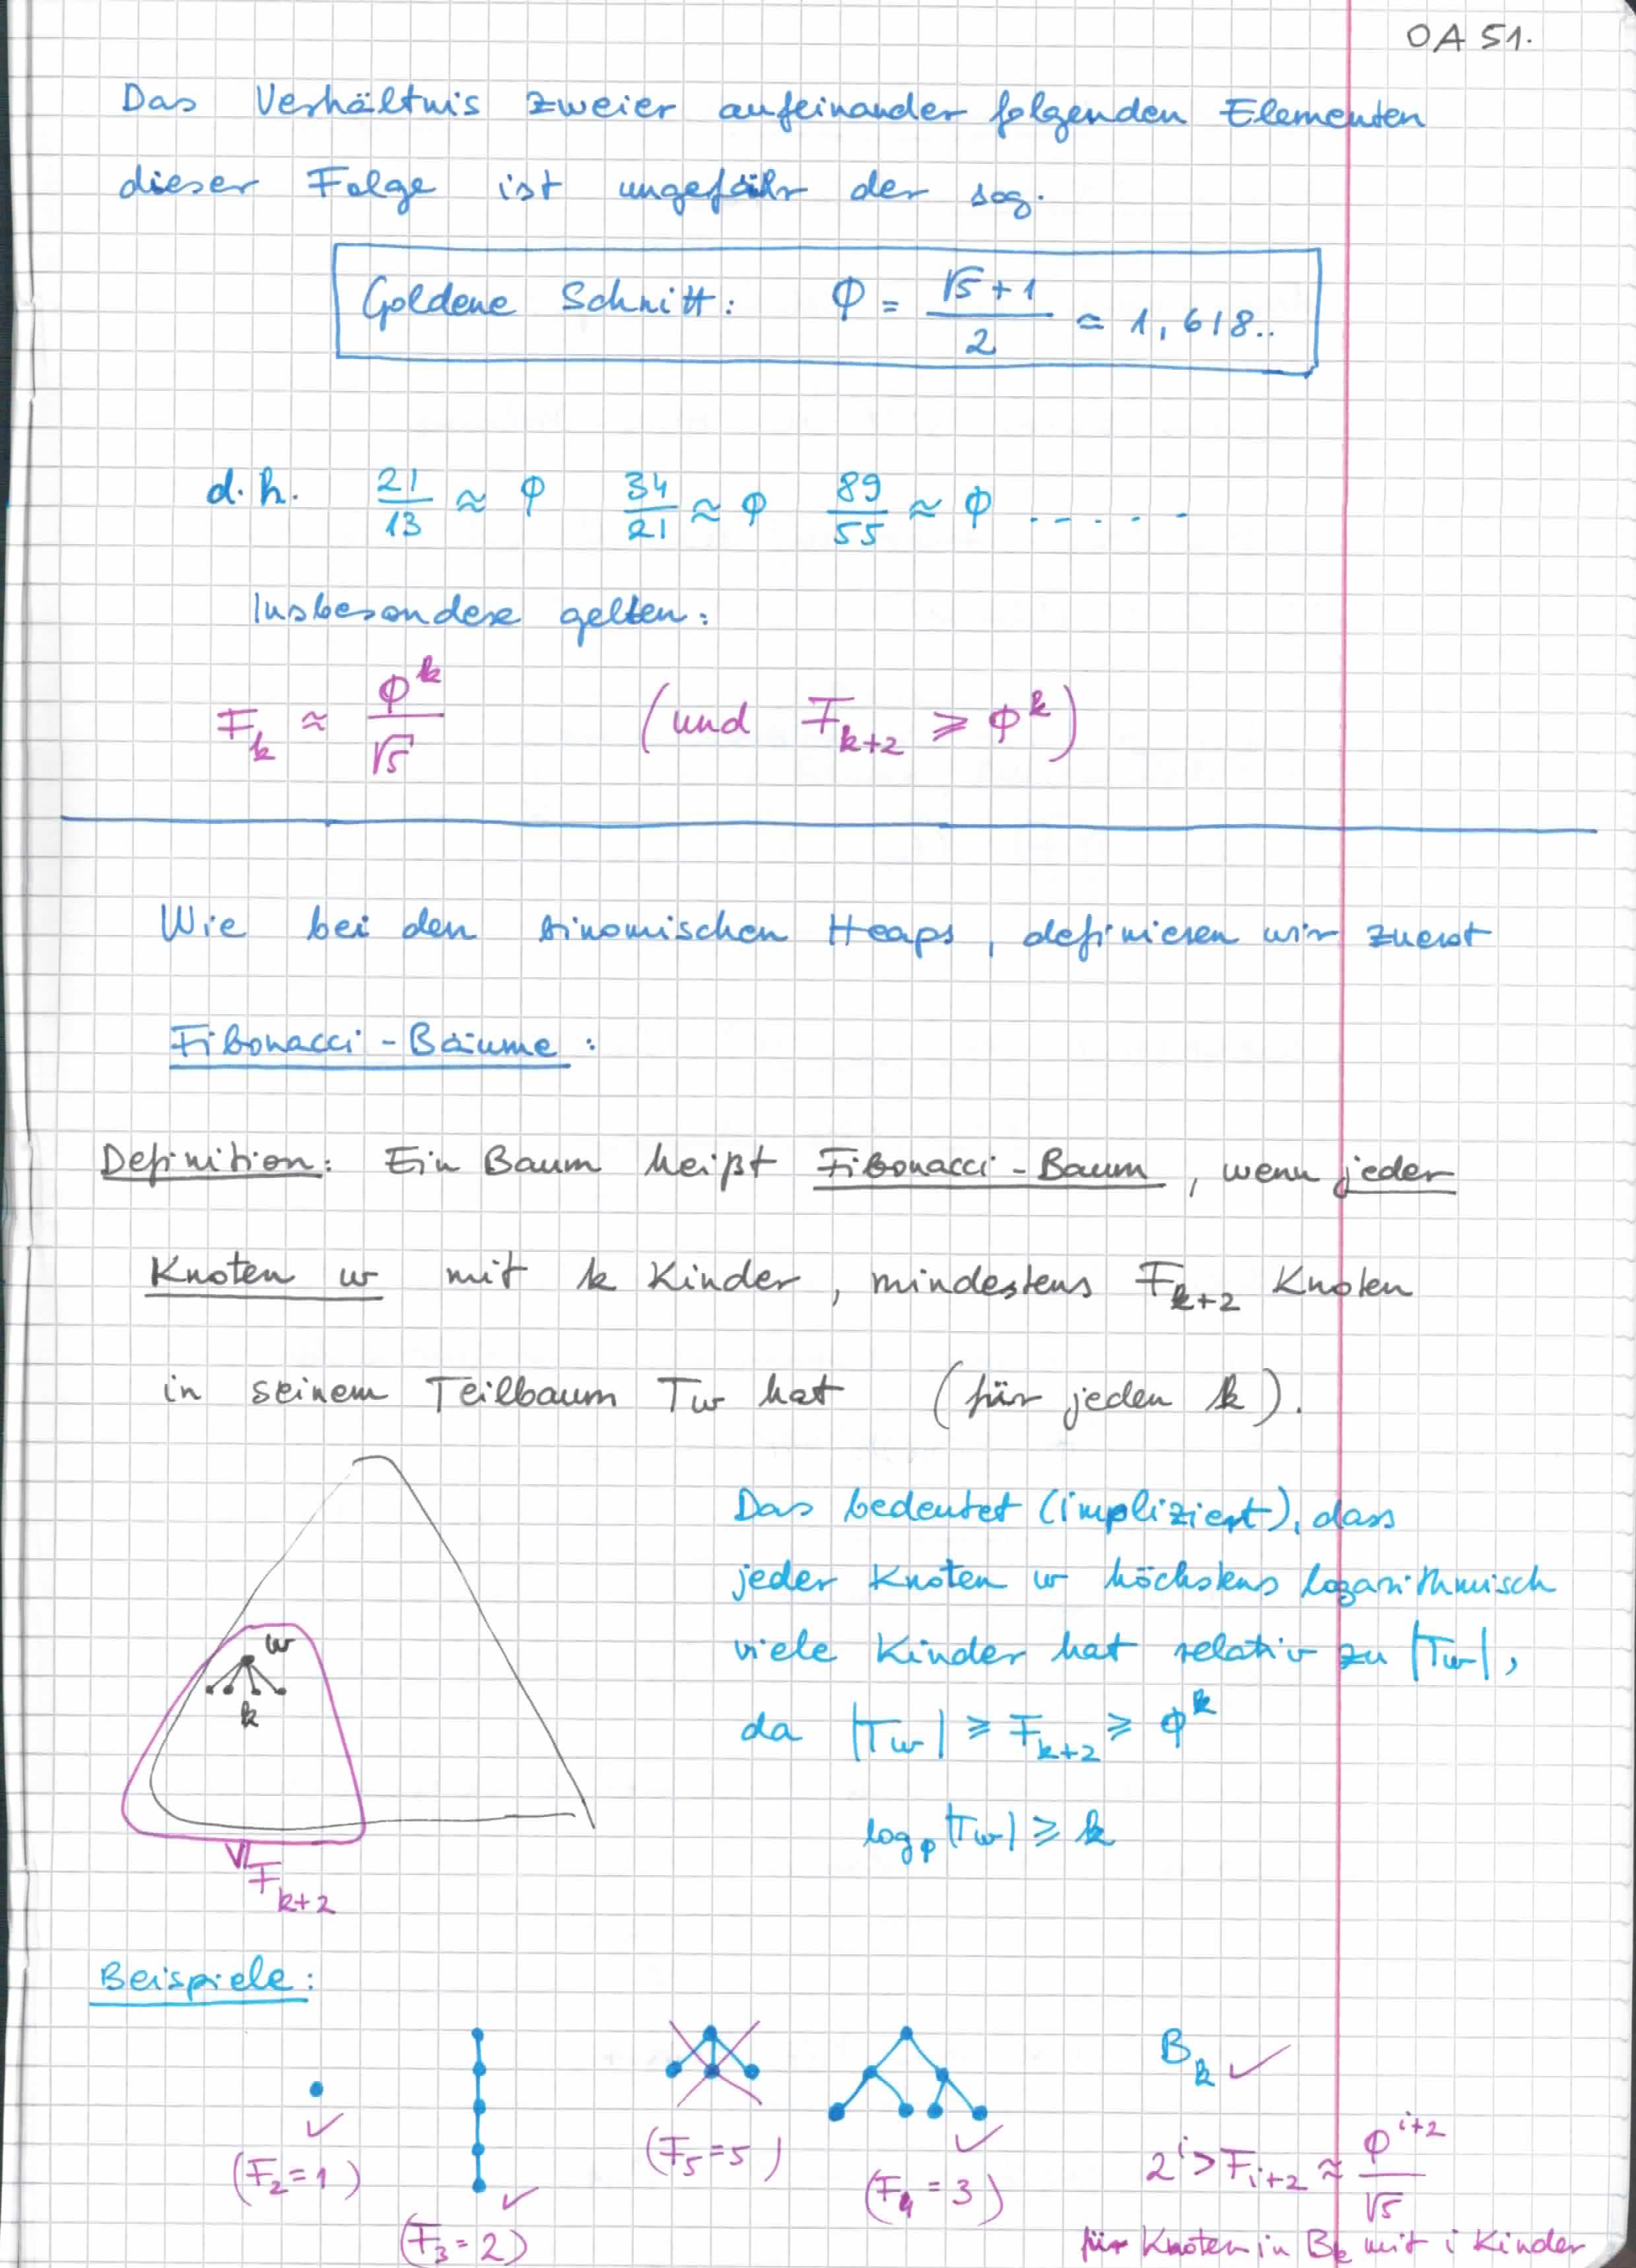 OA 51.
Das Verhältnis zweier aufeinander folgenden Elementen
dieser Folge ist ungefähr der sog.
Goldene Schnitt: φ = (√5 + 1)/2 ≈ 1,618..
d.h. 21/13 ≈ φ 34/21 ≈ φ 89/55 ≈ φ .....
Insbesondere gelten:
F_k ≈ φ^k/√5 (und F_{k+2} ≥ φ^k)
Wie bei den binomischen Heaps, definieren wir zuerst
Fibonacci-Bäume:
Definition: Ein Baum heißt Fibonacci-Baum, wenn jeder
Knoten w mit k Kinder, mindestens F_{k+2} Knoten
in seinem Teilbaum Tw hat (für jeden k).
Das bedeutet (impliziert), dass
jeder Knoten w höchstens logarithmisch
viele Kinder hat relativ zu |Tw|,
da |Tw| ≥ F_{k+2} ≥ φ^k
log_φ |Tw| ≥ k
w
k
≥ F_{k+2}
Beispiele:
B_k ✓
✓
(F_2 = 1)
✓
(F_3 = 2)
(F_5 = 5)
✓
(F_4 = 3)
2^i > F_{i+2} ≈ φ^{i+2}/√5
für Knoten in B_k mit i Kinder